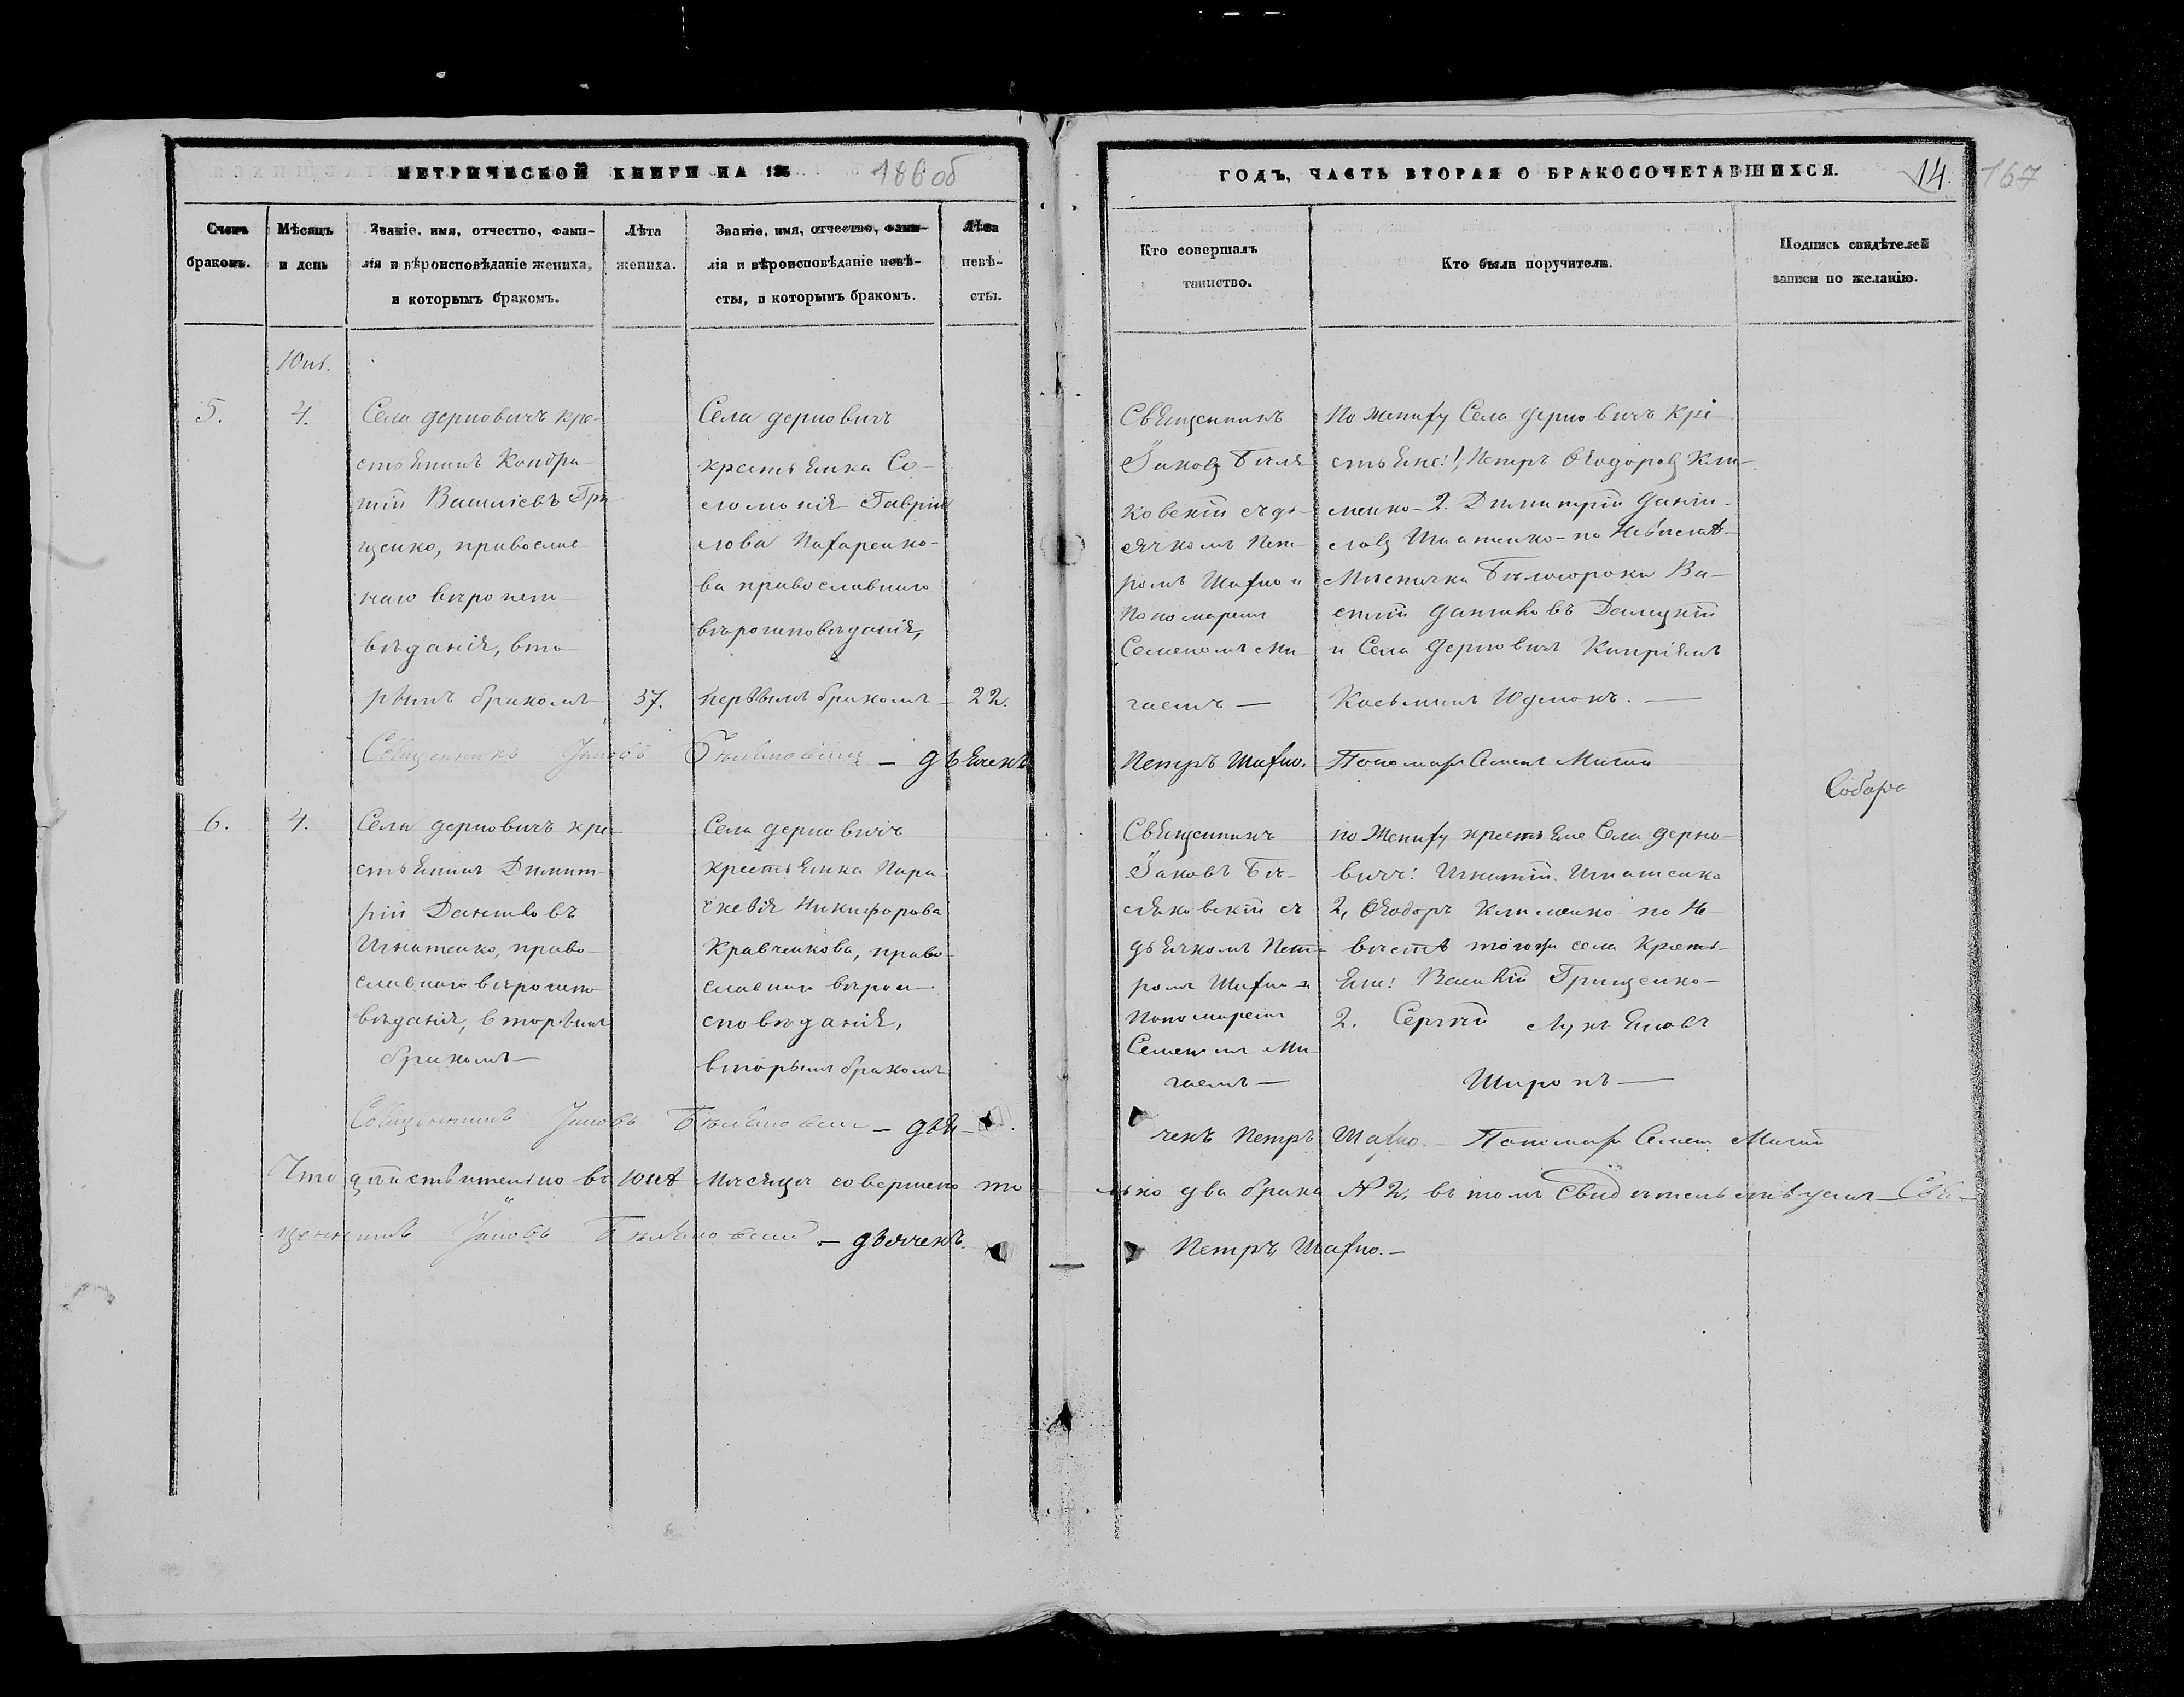 МЕТРИЧЕСКОЙ КНИГИ НА 186
186 об
Счетъ браковъ.
Мѣсяцъ и день
Званіе, имя, отчество, фами-
лія и вѣроисповѣданіе жениха,
и которымъ бракомъ.
Лѣта
жениха.
Званіе, имя, отчество, фами-
лія и вѣроисповѣданіе невѣ-
сты, и которымъ бракомъ.
Лѣта
невѣ-
сты.
Юнь.
5.
4.
Села Дерновичъ кре-
стьянинъ Кондра-
тій Василіевъ Гри
щенко, православ
наго вѣроиспо-
вѣданія, вто-
рымъ бракомъ
37.
Села Дерновичъ
крестьянка Со-
ломонія Гаврiи
лова Назаренко-
ва православнаго
вѣроисповѣданія,
первымъ бракомъ
22.
Священникъ Іаковъ Бѣляковскій – дьячекъ
6.
4.
Села Дерновичъ кре-
стьянинъ Димит-
рій Даниловъ
Игнатенко, право-
славнаго вѣроиспо
вѣданія, вторымъ
бракомъ
Села Дерновичъ
крестьянка Пара-
скевія Никифорова
Кравченкова, право-
славнаго вѣрои-
сповѣданія,
вторымъ бракомъ
Священникъ Іаковъ Бѣляковскій – дья-
Что дѣйствительно въ юнѣ мѣсяцѣ совершено то
щенникъ Іаковъ Бѣляковскій – дьячекъ.
ГОДЪ, ЧАСТЬ ВТОРАЯ О БРАКОСОЧЕТАВШИХСЯ.
14.
167
Кто совершалъ
таинство.
Кто были поручители.
Подпись свидѣтелей
записи по желанію.
Священникъ
Іаковъ Бѣля
ковскій съ дь-
ячкомъ Пет-
ромъ и
Пономаремъ
Семеномъ Ми
гаемъ
По жениху Села Дерновичъ кре-
стьяне: 1, Петръ Ѳеодоровъ Кли-
менко – 2. Димитрій Данiи-
ловъ Игнатенко – по Невѣстѣ
Мѣстечка Бѣлосороки Ва-
силій Даниловъ
и Села Дерновичъ Кипріянъ
Косьминъ
Петръ Пономарь Семенъ Мигай
Собара
Священникъ
Іаковъ Бѣ-
ляковскій съ
дьячкомъ Пет-
ромъ и
Пономаремъ
Семеномъ Ми
гаемъ
по жениху крестьяне Села Дерно-
вичъ: Игнатій Игнатенко
2, Ѳеодоръ Клименко по Не-
вѣстѣ тогожъ села Кресть-
яне: Василій Грищенко –
2. Сергѣй Лукьяновъ
Широкъ
чекъ Петръ Пономарь Семенъ Мигай
лько два брака № 2, въ томъ Свидѣтельствуемъ Свя-
Петръ